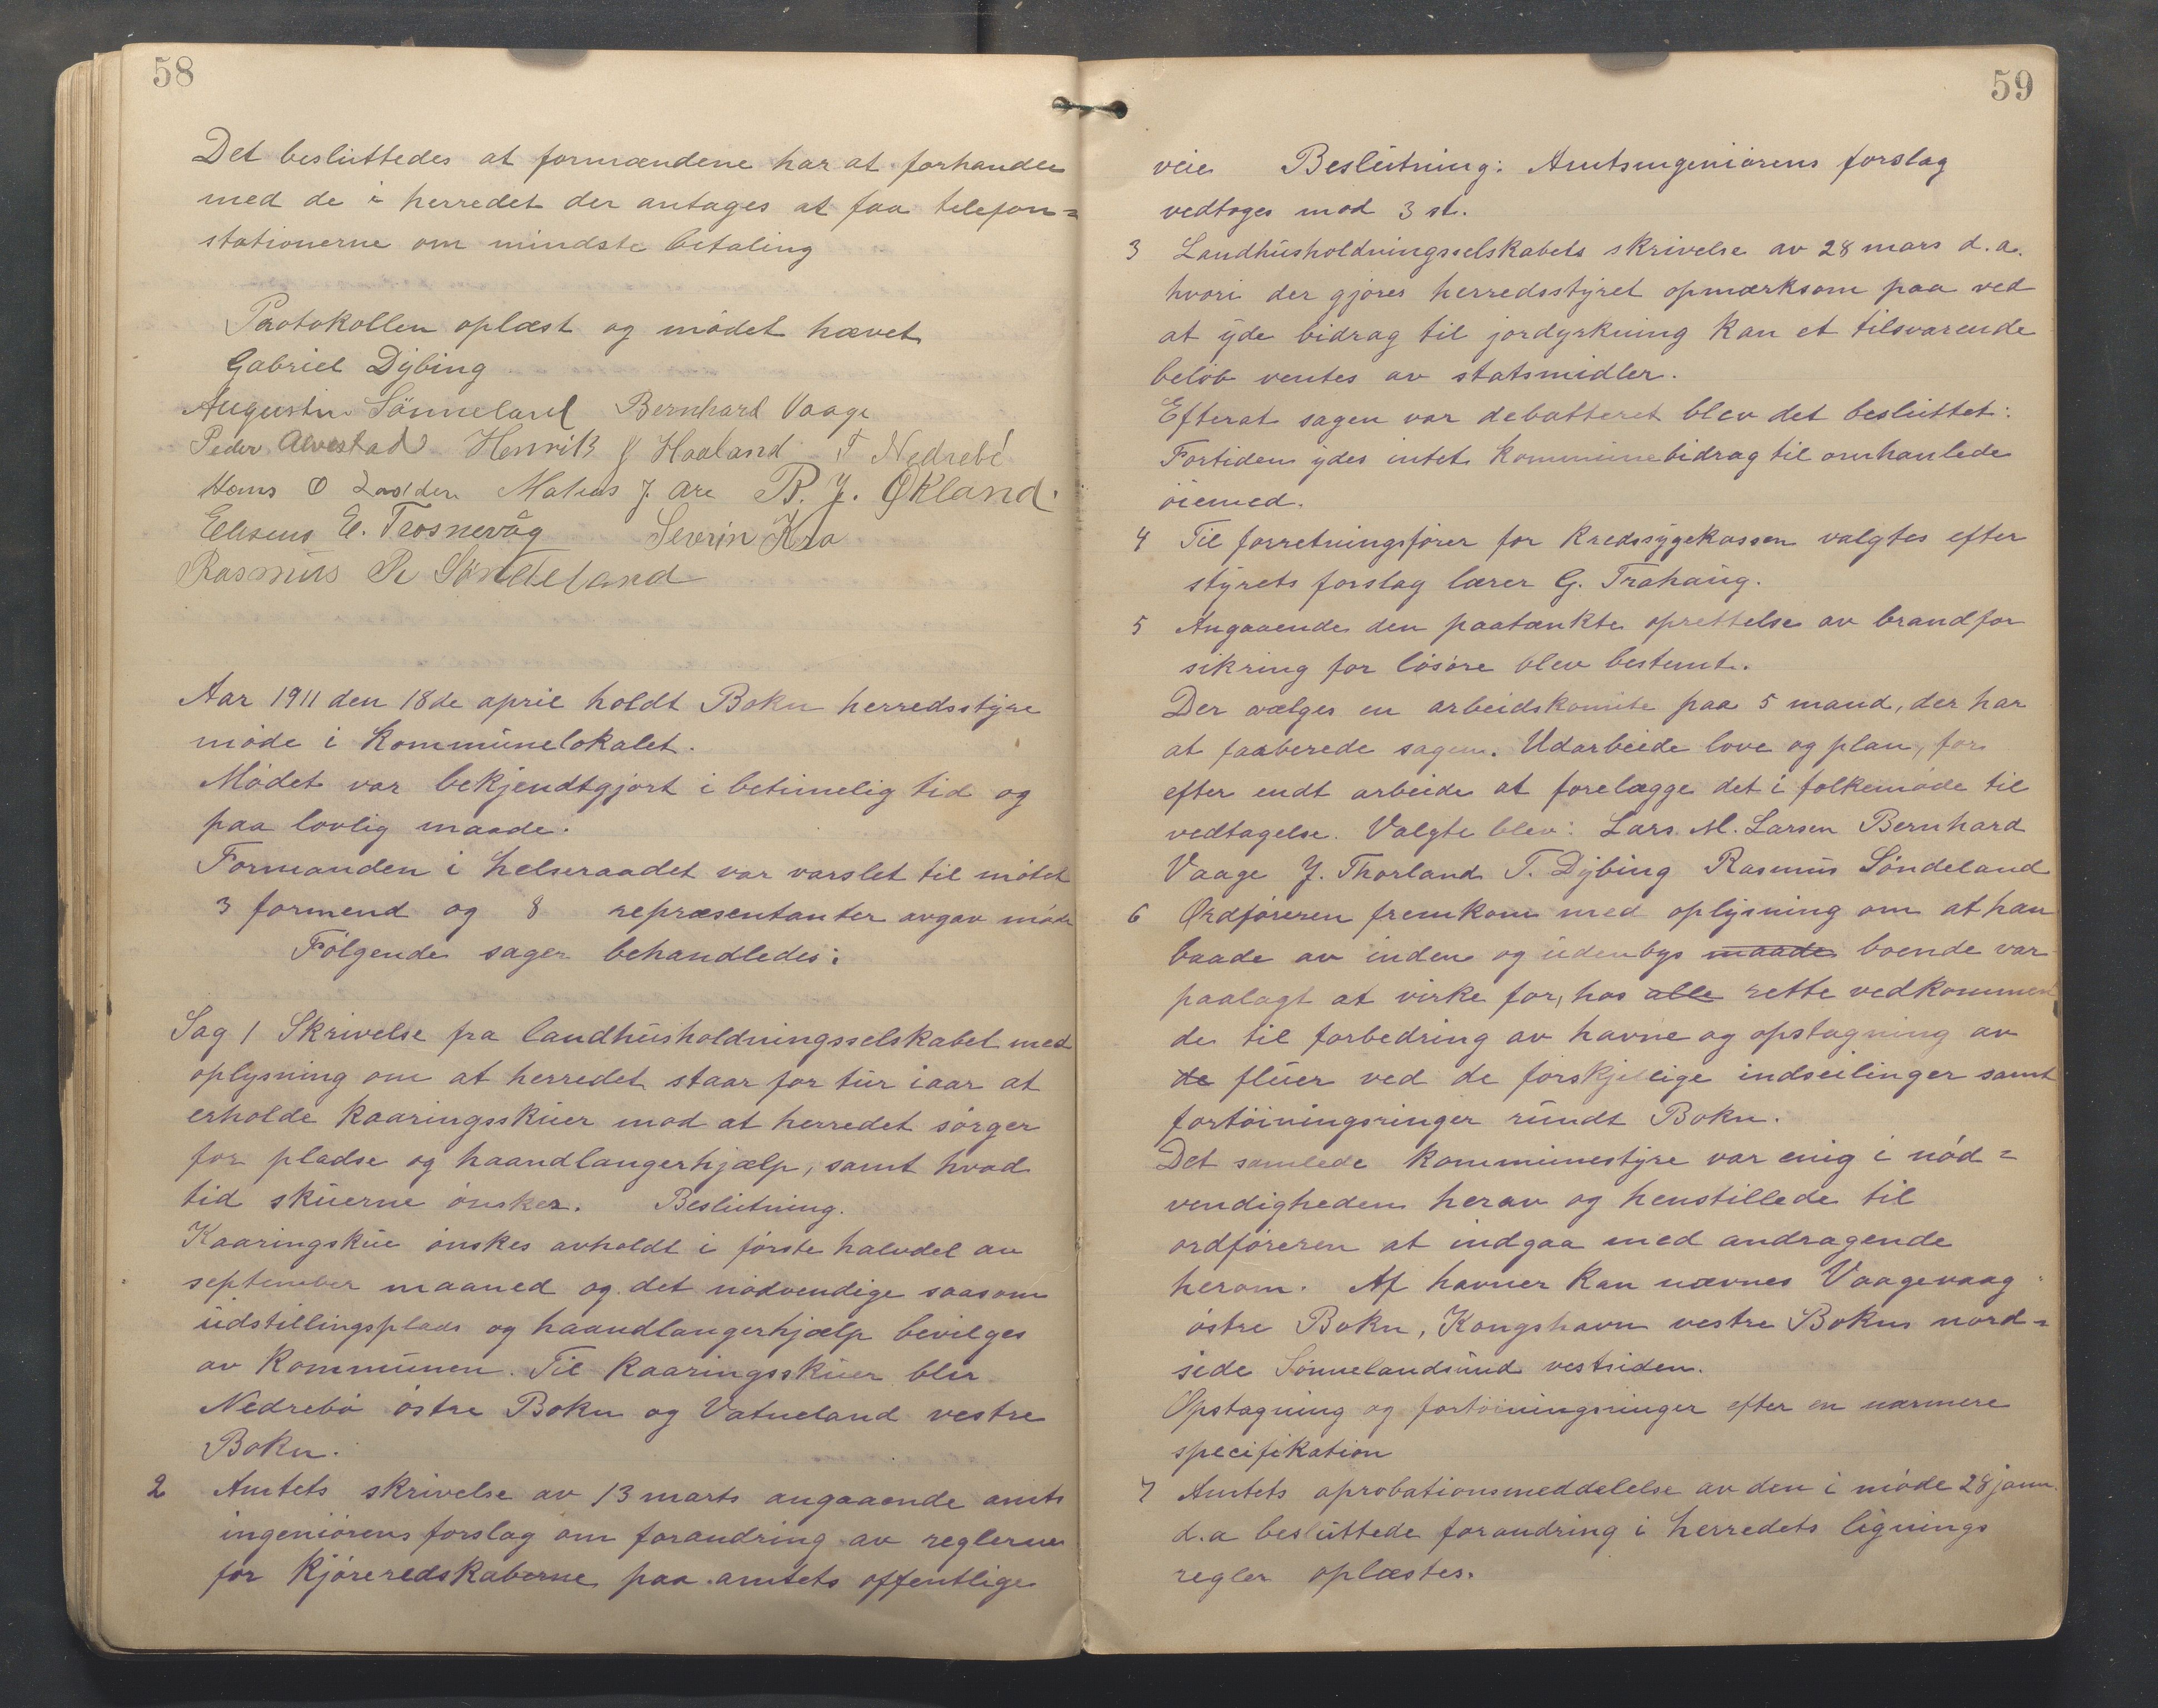 58
Det besluttedes at formændene har at forhandle
med de i herredet der antages at faa telefon=
stationerne om mindste betaling
Protokollen oplæst og mödet hævet
Gabriel Dybing
Augustin Sönneland Bernhard Vaage
Peder Alvestad Henrik J Haaland T Nedrebö
Hans O Lodden Matias J. Are B. J. Økland.
Eliseus E. Trosnevåg Severin Kro
Rasmus R Söndeland
Aar 1911 den 18de april holdt Bokn herredsstyre
möde i kommunelokalet.
Mödet var bekjendtgjort i betimelig tid og
paa lovlig maade.
Formanden i helseraadet var varslet til mötet
3 formend og 8 repræsentanter avgav möde
Fölgende sager behandledes:
Sag 1 Skrivelse fra landhusholdningsselskabet med
oplysning om at herredet staar for tur iaar at
erholde kaaringsskuer mod at herredet sörger
for pladse og haandlangerhjælp, samt hvad
tid skuerne önskes. Beslutning.
Kaaringskue önskes avholdt i förste halvdel av
september maaned og det nödvendige saasom
udstillingsplads og haandlangerhjælp bevilges
av kommunen. Til kaaringsskuer blir
Nedrebö östre Bokn og Vatneland vestre
Bokn.
2 Amtets skrivelse av 13 marts angaaende amts
ingeniörens forslag om forandring av reglerne
for kjöreredskaberne paa amtets offentlige
59
veie Beslutning: Amtsingeniörens forslag
vedtoges mod 3 st.
3 Landhusholdningsselskabets skrivelse av 28 mars d.a.
hvori der gjöres herredsstyret opmærksom paa ved
at yde bidrag til jordyrkning kan et tilsvarende
belöb ventes av statsmidler.
Efterat sagen var debatteret blev det besluttet:
Fortiden ydes intet kommunebidrag til omhanlede
öiemed.
4 Til forretningsförer for kredssygekassen valgtes efter
styrets forslag lærer G. Trohaug.
5 Angaaende den paatænkte oprettelse av brandfor
sikring for lösöre blev bestemt.
Der vælges en arbeidskomite paa 5 mand, der har
at faaberede sagen. Udarbeide love og plan, for
efter endt arbeide at forelægge det i folkemöde til
vedtagelse. Valgte blev: Lars. M. Larsen Bernhard
Vaage J. Thorland T. Dybing Rasmus Söndeland
6 Ordföreren fremkom med oplysning om at han
baade av inden og udenbys maade boende var
paalagt at virke for, hos alle rette vedkommen
de til forbedring av havne og opstagning av
de fluer ved de forskjellige indseilinger samt
fortöiningsringer rundt Bokn.
Det samlede kommunestyre var enig i nöd=
vendigheden herav og henstillede til
ordföreren at indgaa med andragende
herom. Af havner kan nævnes Vaagevaag
östre Bokn, Kongshavn vestre Bokns nord=
side Sönnelandsund vestsiden.
Opstagning og fortöiningsringer efter en nærmere
specifikation
7 Amtets aprobationsmeddelelse av den i möde 28 janu.
d.a besluttede forandring i herredets lignings
regler oplæstes.